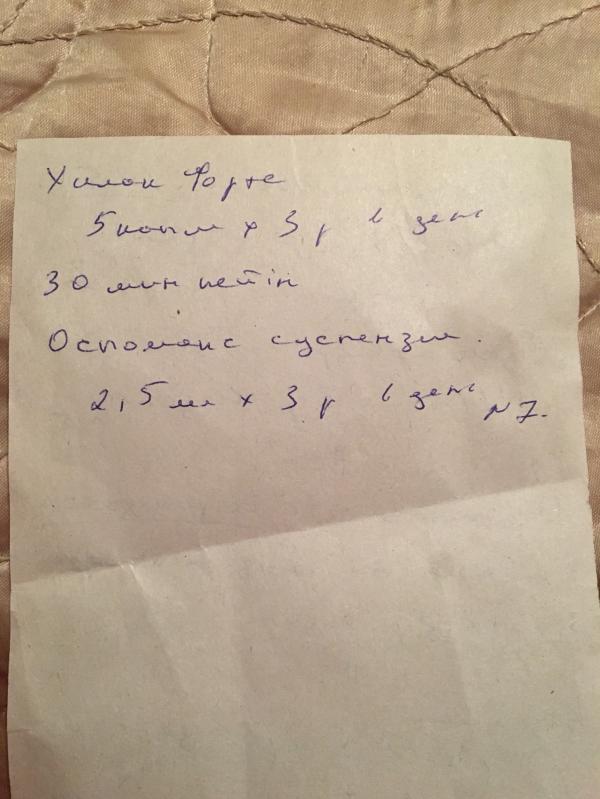 Хилак Форте
5 капли х 3 р в день
30 мин кейін
Оспамокс суспензия.
2,5 мл х 3 р в день N 7.